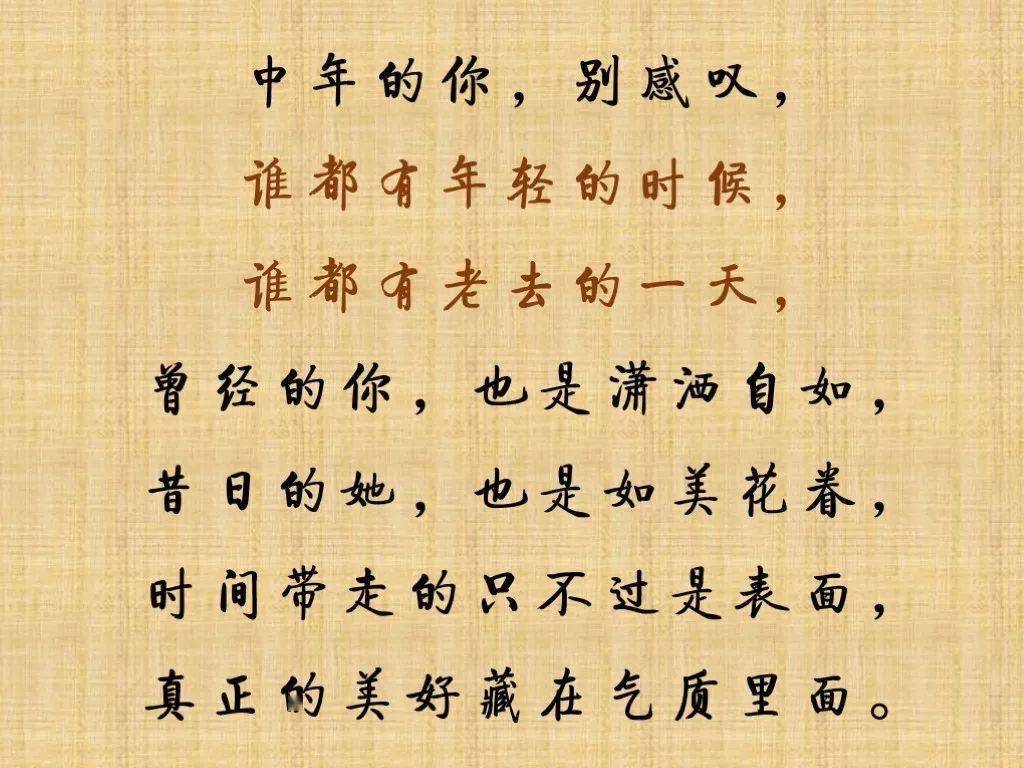 中年的你，别感叹，
谁都有年轻的时候，
谁都有老去的一天，
曾经的你，也是潇洒自如，
昔日的她，也是如美花眷，
时间带走的只不过是表面，
真正的美好藏在气质里面。